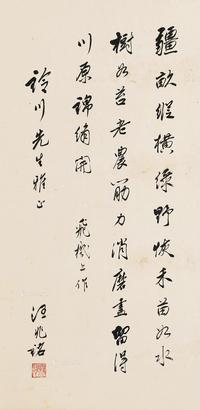 疆畝縱橫綠野恢禾苗如水
樹如苔老農筋力消磨盡留得
川原錦繡開
飛機上作
川先生雅正
汪兆銘